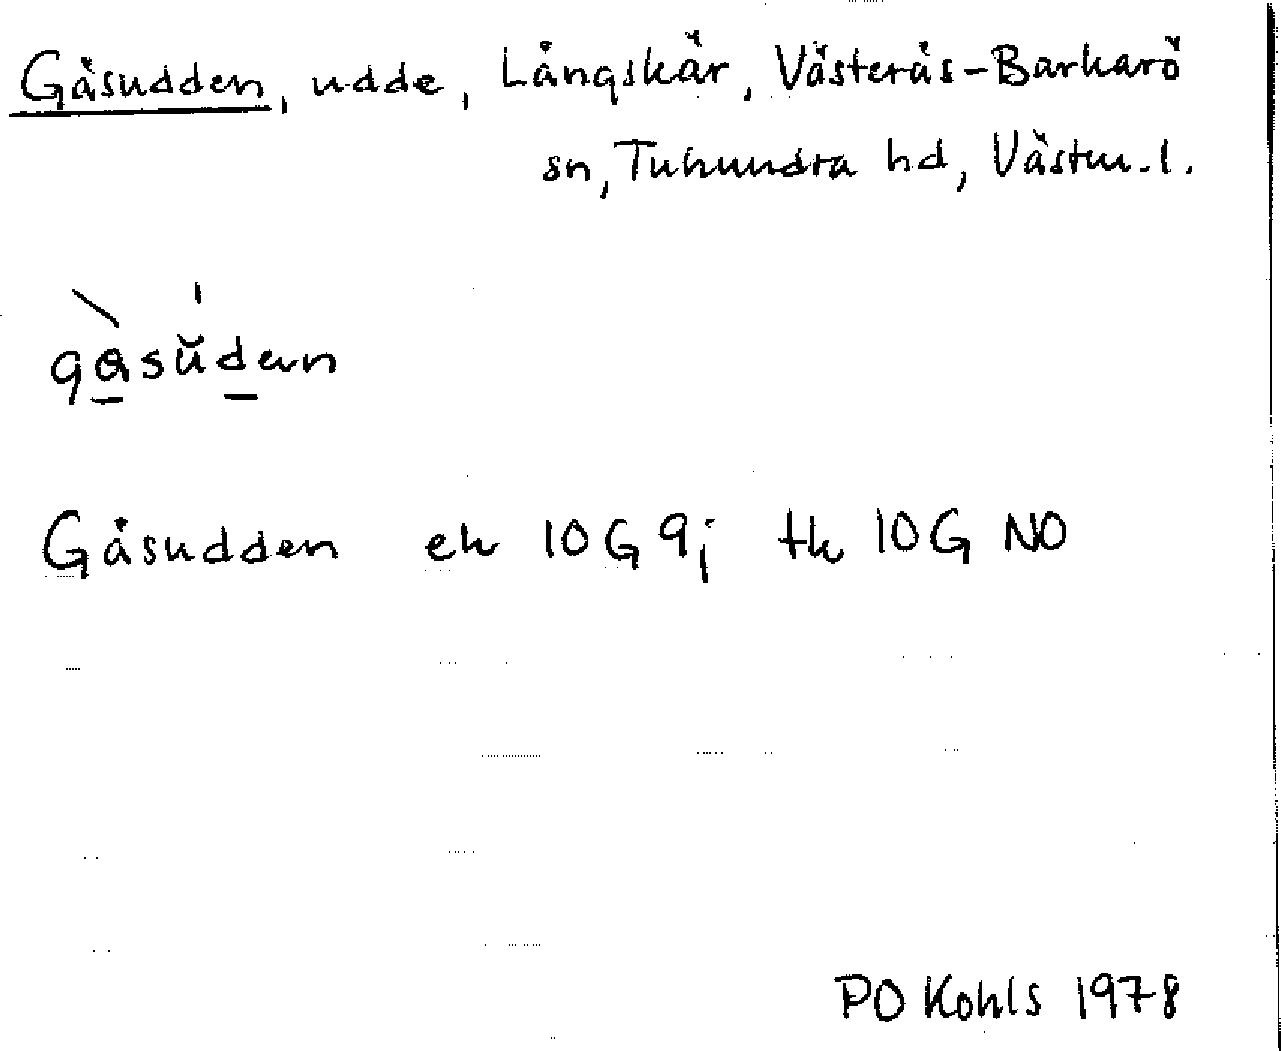 Gåsudden, udde, Långskär, Västerås-Barkarö
sn, Tuhundra hd, Västm.l.
Gåsudden ek 10 G 9j tk 10 G NO
PO Kohls 1978